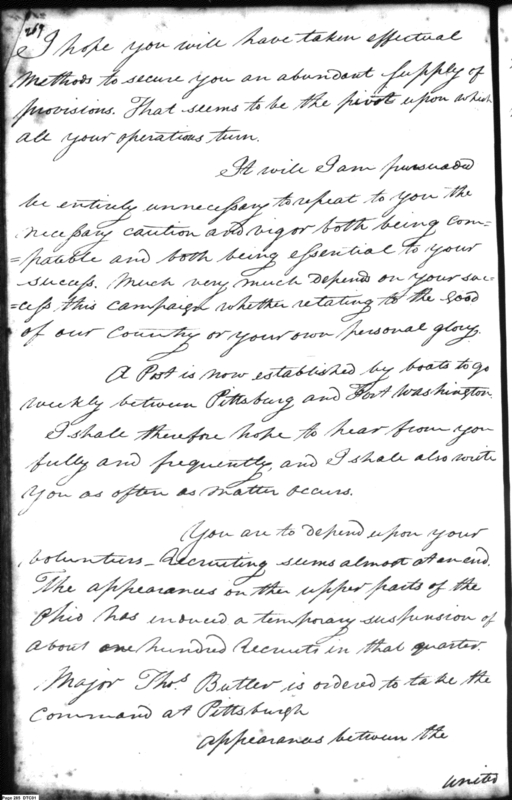 269
I hope you will have taken effectual
methods to secure you an abundant supply of
provisions. That seems to be the pivot upon which
all your operations turn.
It will I am persuaded
be entirely unnecessary to repeat to you the
necessary caution and vigor both being com-
=patible and both being essential to your
success. Much very much depends on your suc-
=cess this campaign whether relating to the Good
of our Country or your own personal glory.
A Post is now established by boats to go
weekly between Pittsburg and Fort Washington.
I shall therefore hope to hear from you
fully and frequently, and I shall also write
you as often as matter occurs.
You are to depend upon your
Volunteers - Recruiting seems almost at an end.
The appearances on the upper parts of the
Ohio has induced a temporary suspension of
about one hundred recruits in that quarter.
Major Thos. Butler is ordered to take the
command at Pittsburgh
appearances between the
United
Page 269 DTC01